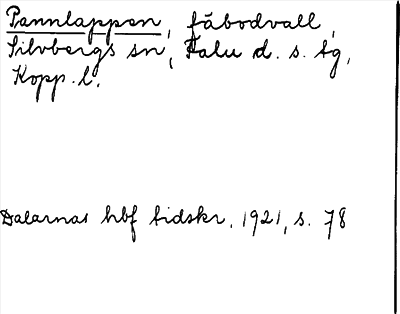 Pannlappen, fäbodvall,
Silvbergs sn, Falu d. s. tg,
Kopp. l.
Dalarnas hbf tidskr. 1921, s. 78